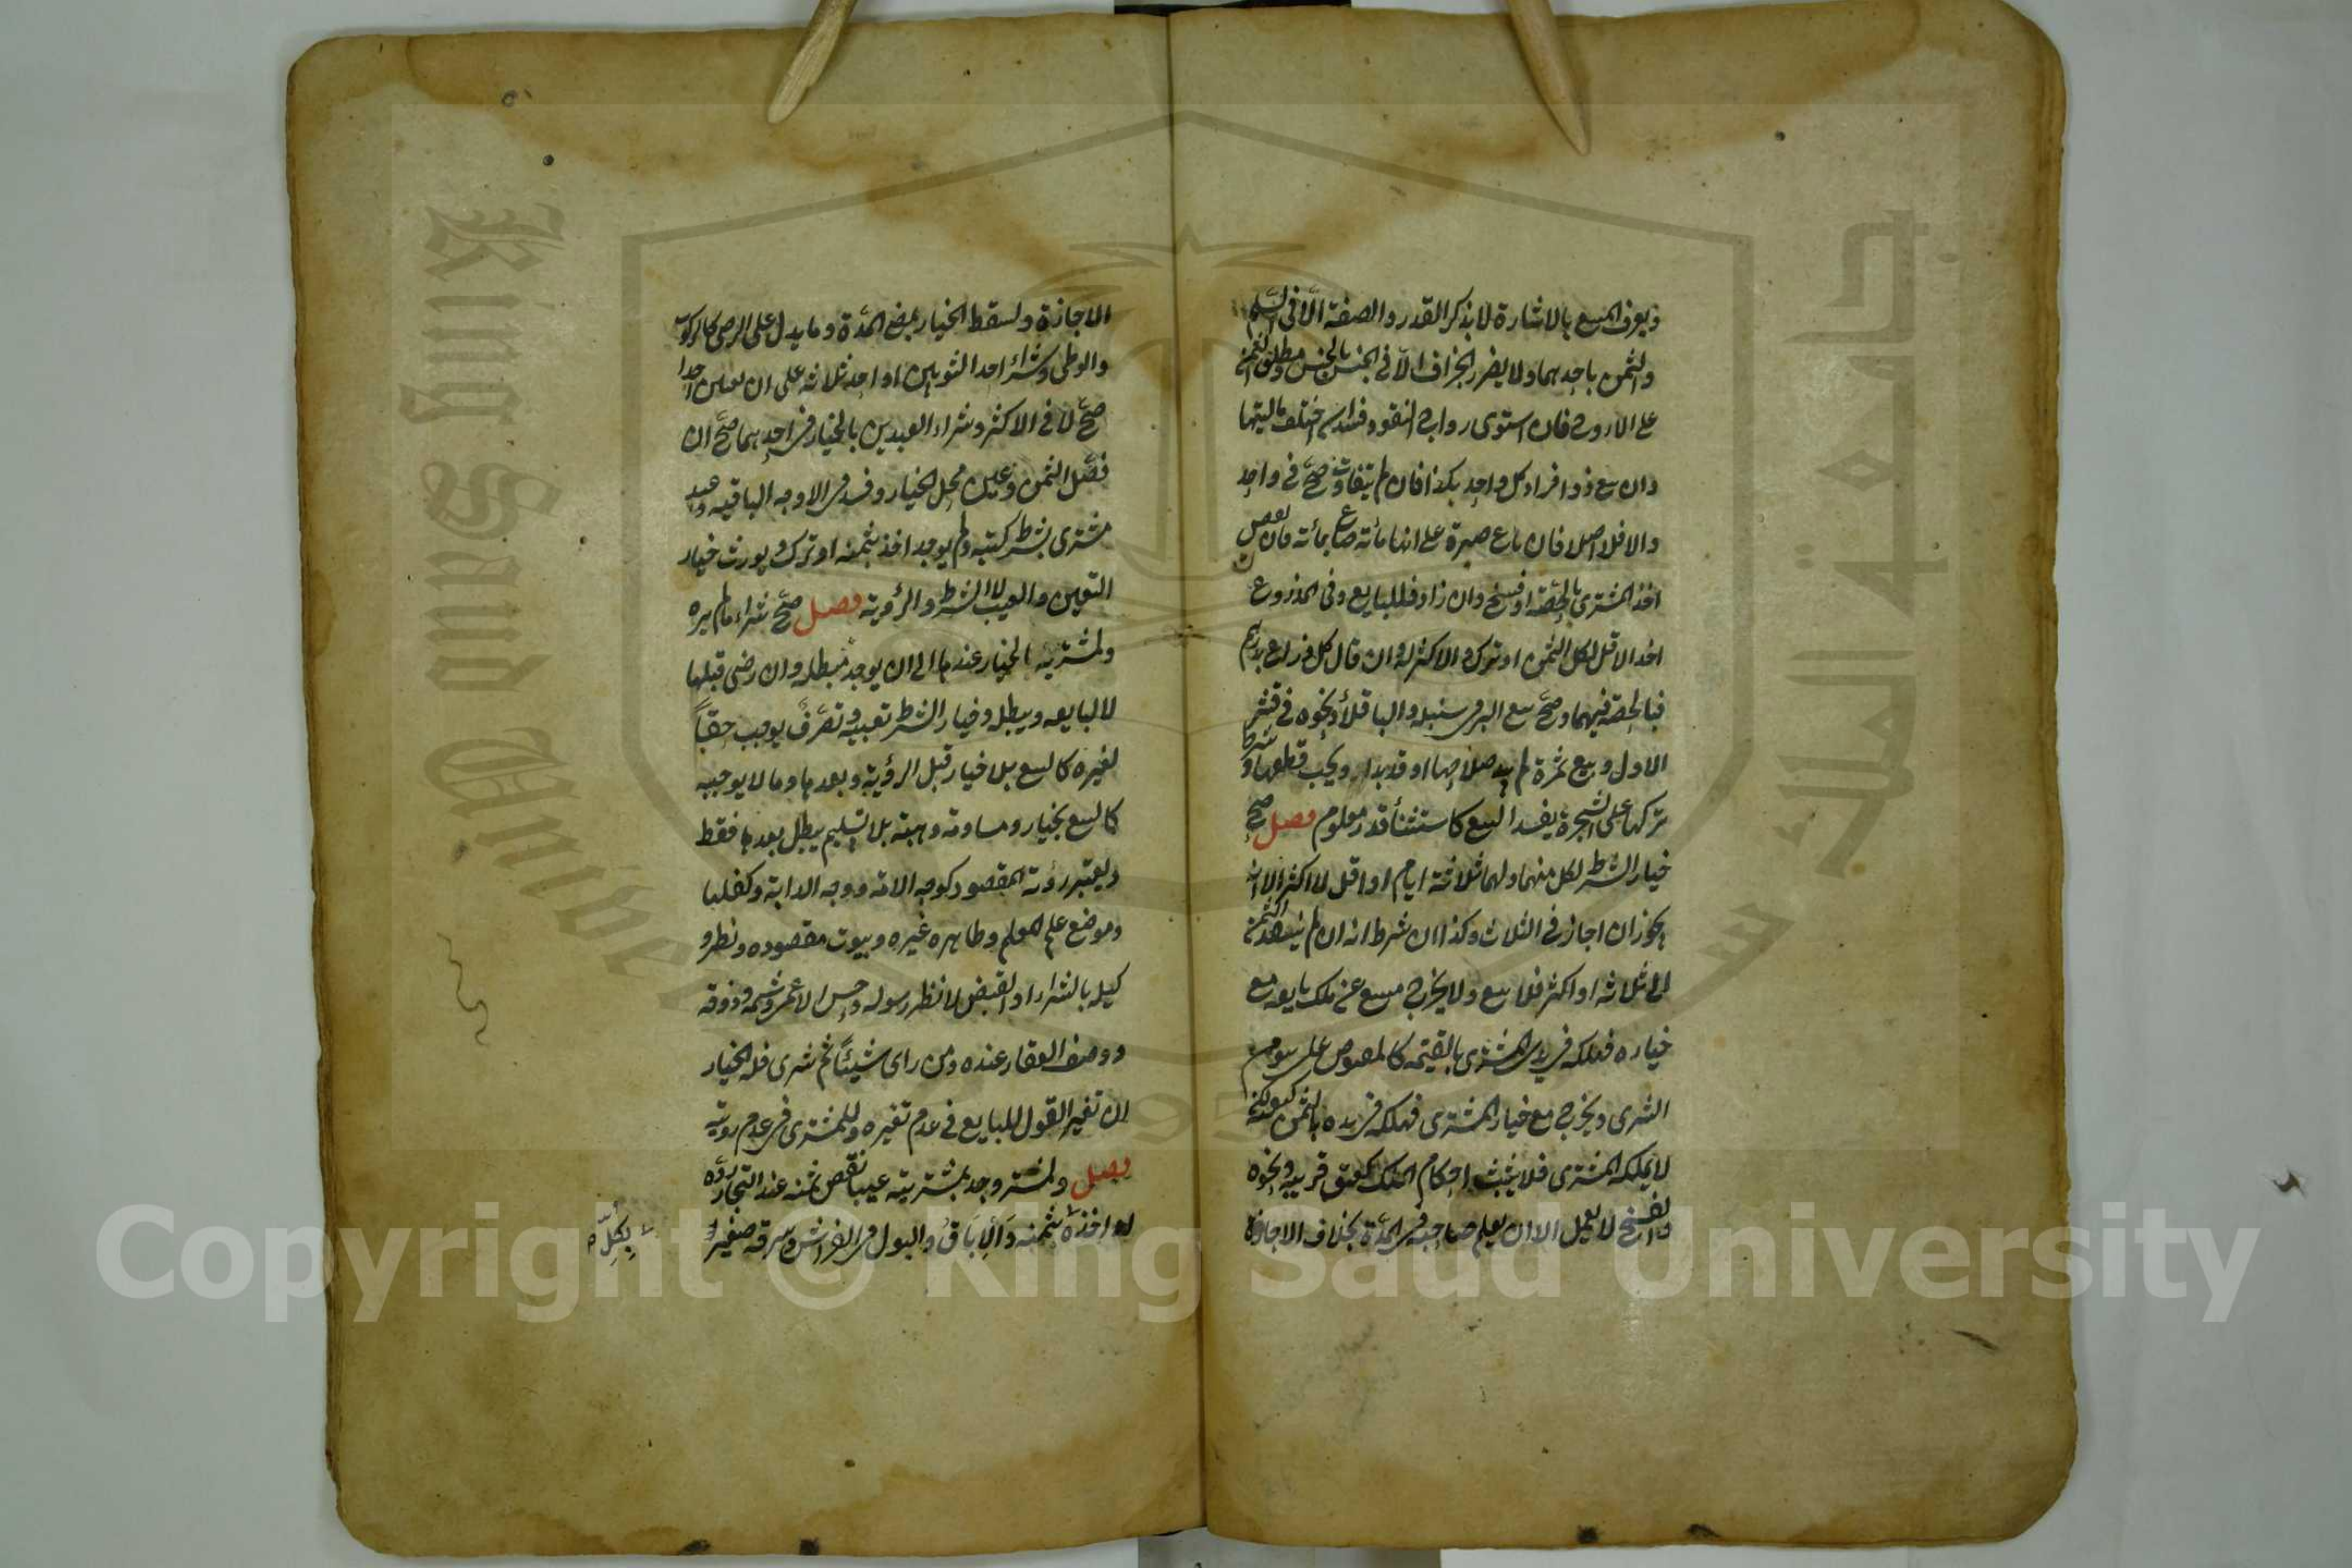 ويعرف المبيع بالاشارة لا بذكر القدر والصفة الا في السلم
والثمن باحدهما ولا يضر الجزاف الا في الجنس بالجنس ومطلق الثمن
على الاروج فان استوى رواج النقود فسد ان اختلف ماليتها
وان بيع ذو افراد كل واحد بكذا فان لم يتفاوت صح في واحد
والا فلا اصلا فان باع صبرة على انها مائة صاع بمائة فان نقص
اخذ المشتري بالحصة او فسخ وان زاد فللبايع وفي المذروع
اخذ الاقل لكل الثمن او ترك والاكثر له وان قال كل ذراع بدرهم
فبالحصة فيهما وصح بيع البر في سنبله والباقلأ ونحوه في قشر
الاول وبيع ثمرة لم يبد صلاحها او قد بدا ويجب قطعها وشرط
تركها على الشجرة يفسد البيع كاستثنأ قدر معلوم فصل صح
خيار الشرط لكل منهما ولهما ثلاثة ايام او اقل لا اكثر الا انه
يجوز ان اجاز في الثلاث وكذا ان شرط انه ان لم ينقد الثمن
الى ثلاثة او اكثر فلا بيع ولا يخرج مبيع عن ملك بايعه مع
خياره فهلكه في يد المشتري بالقيمة كالمقبوض على سوم
الشرى ويخرج مع خيار المشتري فهلكه في يده بالثمن كتعيبه لكنه
لا يملكه المشتري فلا يثبت احكام الملك كعتق قريبه ونحوه
والفسخ لا يعمل الا ان يعلم صاحبه في المدة بخلاف الاجازة
الاجازة ويسقط الخيار بمضي المدة وما يدل على الرضى كالركوب
والوطى وشراء احد الثوبين او احد ثلاثة على ان يعين احدا
صح لا في الاكثر وشراء العبدين بالخيار في احدهما صح ان
فصل الثمن وعين محل الخيار وفسد في الاوجه الباقيه وعبد
مشترى بشرط كتبه ولم يوجد اخذ بثمنه او ترك ويورث خيار
التعيين والعيب لا الشرط والرؤية فصل صح شراء ما لم يره
ولمشتريه الخيار عندها الى ان يوجد مبطله وان رضى قبلها
لا لبايعه ويبطله وخيار الشرط تعيبه وتصرف يوجب حقا
لغيره كالبيع بلا خيار قبل الرؤية وبعدها وما لا يوجبه
كالبيع بخيار ومساومة وهبة بلا تسليم يبطل بعدها فقط
ويعتبر رؤية المقصود كوجه الامة ووجه الدابة وكفلها
وموضع علم المعلم وظاهره غيره وبيوت مقصوده ونظر و
كيله بالشراء او القبض لا نظر رسوله وحس الاعمى وشمه وذوقه
ووصف العقار عنده ومن راى شيئا ثم شرى فله الخيار
ان تغير القول للبايع في عدم تغيره وللمشتري في عدم رويته
فصل ولمشتر وجد بمشتريه عيبا نقص ثمنه عند التجار رده
او اخذه بثمنه والاباق والبول في الفراش وسرقة صغير
بكل
Copyright © King Saud University
King Saud University
جامعة الملك سعود
1957